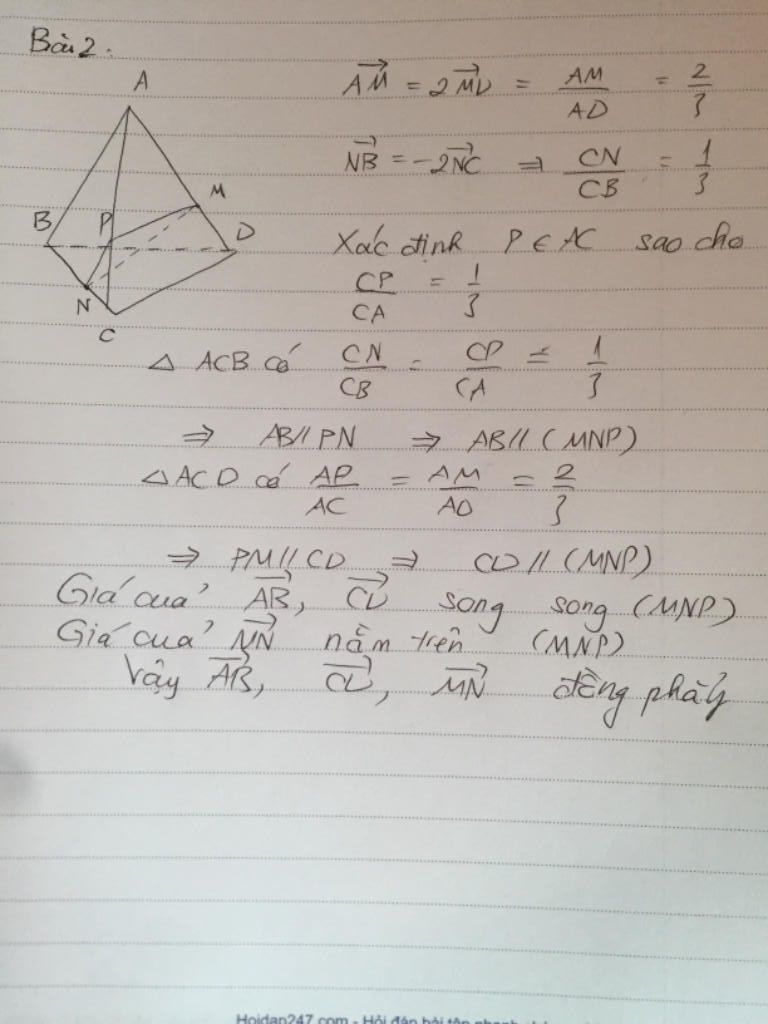 Bài 2.
A
B
P
M
D
N
C
AM→ = 2MD→ = AM/AD = 2/3
NB→ = -2NC→ ⇒ CN/CB = 1/3
Xác định P ∈ AC sao cho
CP/CA = 1/3
△ ACB có CN/CB = CP/CA = 1/3
⇒ AB // PN ⇒ AB // (MNP)
△ ACD có AP/AC = AM/AD = 2/3
⇒ PM // CD ⇒ CD // (MNP)
Giá cuả AB→, CD→ song song (MNP)
Giá cuả MN→ nằm trên (MNP)
Vậy AB→, CD→, MN→ đồng phẳng